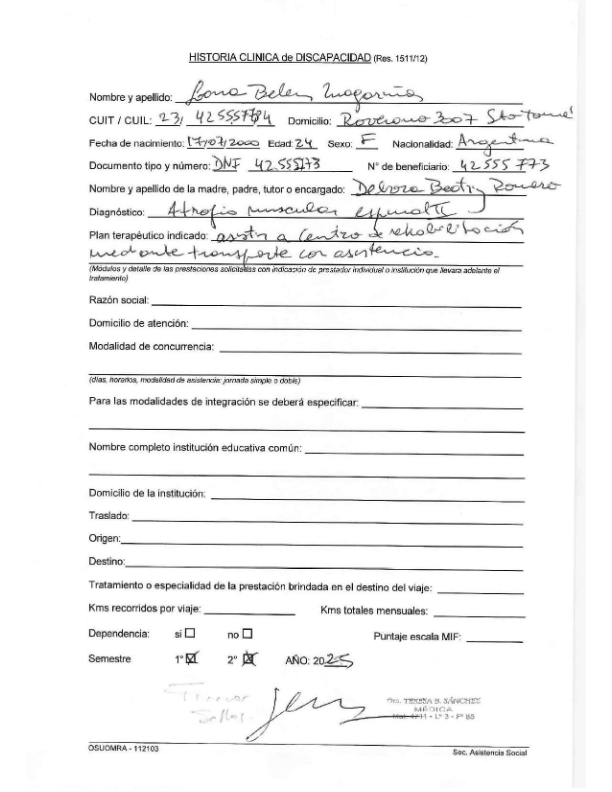 HISTORIA CLINICA de DISCAPACIDAD (Res. 1511/12)
Nombre y apellido: Belen
CUIT / CUIL: 23/ Domicilio: 3007 Sto Tomé
Fecha de nacimiento: 17/07/2000 Edad: 24 Sexo: F Nacionalidad: Argentina
Documento tipo y número: DNI N° de beneficiario: 42 555 773
Nombre y apellido de la madre, padre, tutor o encargado: Debora Beatriz Romero
Diagnóstico: Atrofia muscular espinal II
Plan terapéutico indicado: asistir a Centro de rehabilitación
mediante transporte con asistencia.
(Módulos y detalle de las prestaciones solicitadas con indicación de prestador individual o institución que llevara adelante el
tratamiento)
Razón social:
Domicilio de atención:
Modalidad de concurrencia:
(días, horarios, modalidad de asistencia: jornada simple o doble)
Para las modalidades de integración se deberá especificar:
Nombre completo institución educativa común:
Domicilio de la institución:
Traslado:
Origen:
Destino:
Tratamiento o especialidad de la prestación brindada en el destino del viaje:
Kms recorridos por viaje: Kms totales mensuales:
Dependencia: si no Puntaje escala MIF:
Semestre 1° 2° AÑO: 2025
Dra. TERESA B. SÁNCHEZ
MÉDICA
Mat. 4711 - L° 3 - F° 85
OSUOMRA - 112103 Sec. Asistencia Social